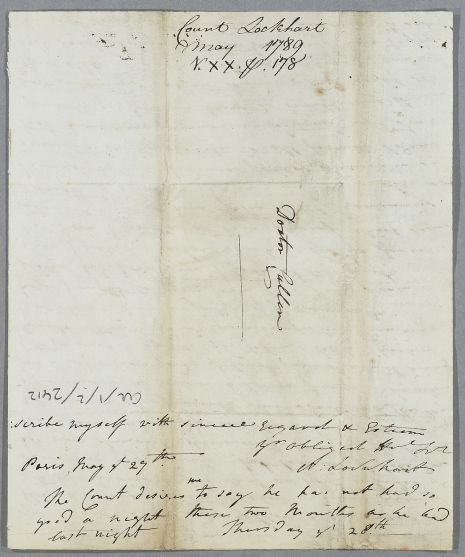 Count Lockhart
May 1789
V. XX. p. 178
Doctor Cullen
CUL/1/2/2412
:scribe myself with sincere Regard & Esteem
Yr Obliged
A. Lockhart
Paris, May ye 29th
The Count desires me to say he has not had so
good a night these two Months as he had
last night Thursday ye 28th